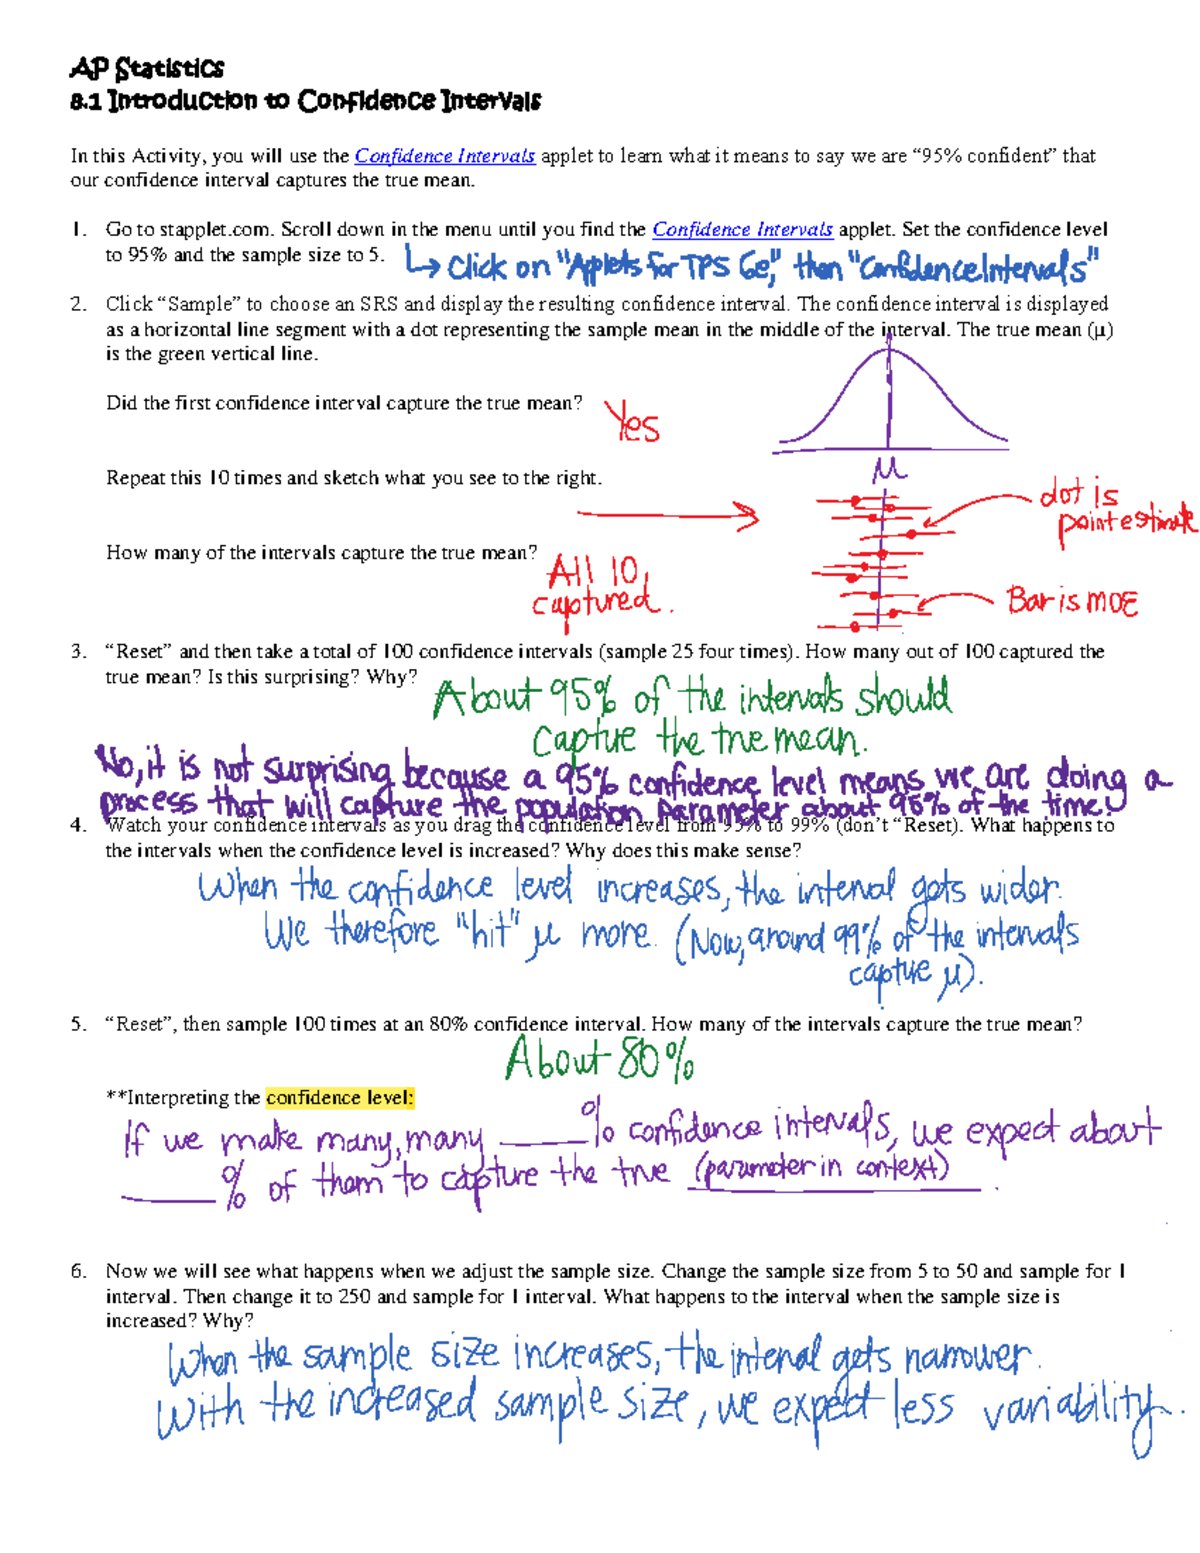 AP Statistics
8.1 Introduction to Confidence Intervals
In this Activity, you will use the Confidence Intervals applet to learn what it means to say we are “95% confident” that
our confidence interval captures the true mean.
1. Go to stapplet.com. Scroll down in the menu until you find the Confidence Intervals applet. Set the confidence level
to 95% and the sample size to 5.
↳ Click on "Applets for TPS 6e," then "Confidence Intervals"
2. Click “Sample” to choose an SRS and display the resulting confidence interval. The confidence interval is displayed
as a horizontal line segment with a dot representing the sample mean in the middle of the interval. The true mean (µ)
is the green vertical line.
Did the first confidence interval capture the true mean?
Yes
µ
Repeat this 10 times and sketch what you see to the right.
dot is
point estimate
How many of the intervals capture the true mean?
All 10
captured.
Bar is MOE
3. “Reset” and then take a total of 100 confidence intervals (sample 25 four times). How many out of 100 captured the
true mean? Is this surprising? Why?
About 95% of the intervals should
capture the true mean.
No, it is not surprising because a 95% confidence level means we are doing a
process that will capture the population parameter about 95% of the time!
4. Watch your confidence intervals as you drag the confidence level from 95% to 99% (don’t “Reset). What happens to
the intervals when the confidence level is increased? Why does this make sense?
When the confidence level increases, the interval gets wider.
We therefore "hit" µ more. (Now, around 99% of the intervals
capture µ).
5. “Reset”, then sample 100 times at an 80% confidence interval. How many of the intervals capture the true mean?
About 80%
**Interpreting the confidence level:
If we make many, many ____% confidence intervals, we expect about
____% of them to capture the true (parameter in context).
6. Now we will see what happens when we adjust the sample size. Change the sample size from 5 to 50 and sample for 1
interval. Then change it to 250 and sample for 1 interval. What happens to the interval when the sample size is
increased? Why?
When the sample size increases, the interval gets narrower.
With the increased sample size, we expect less variability.